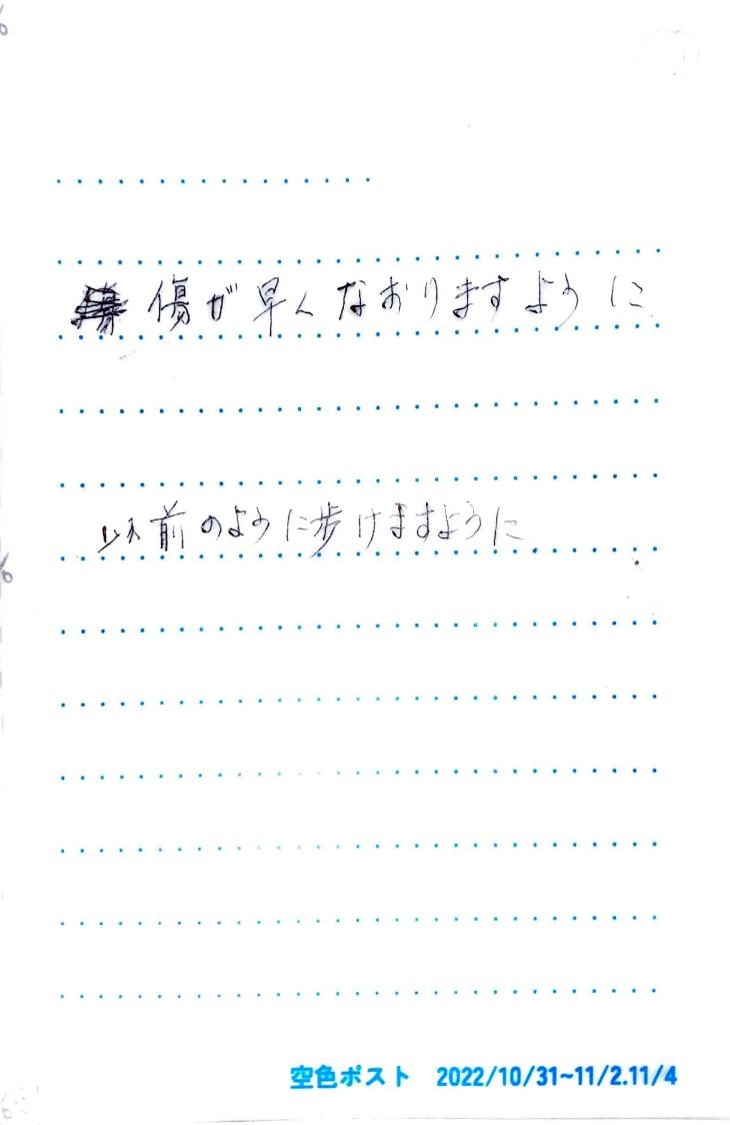 傷が早くなおりますように
以前のように歩けますように
空色ポスト 2022/10/31~11/2.11/4